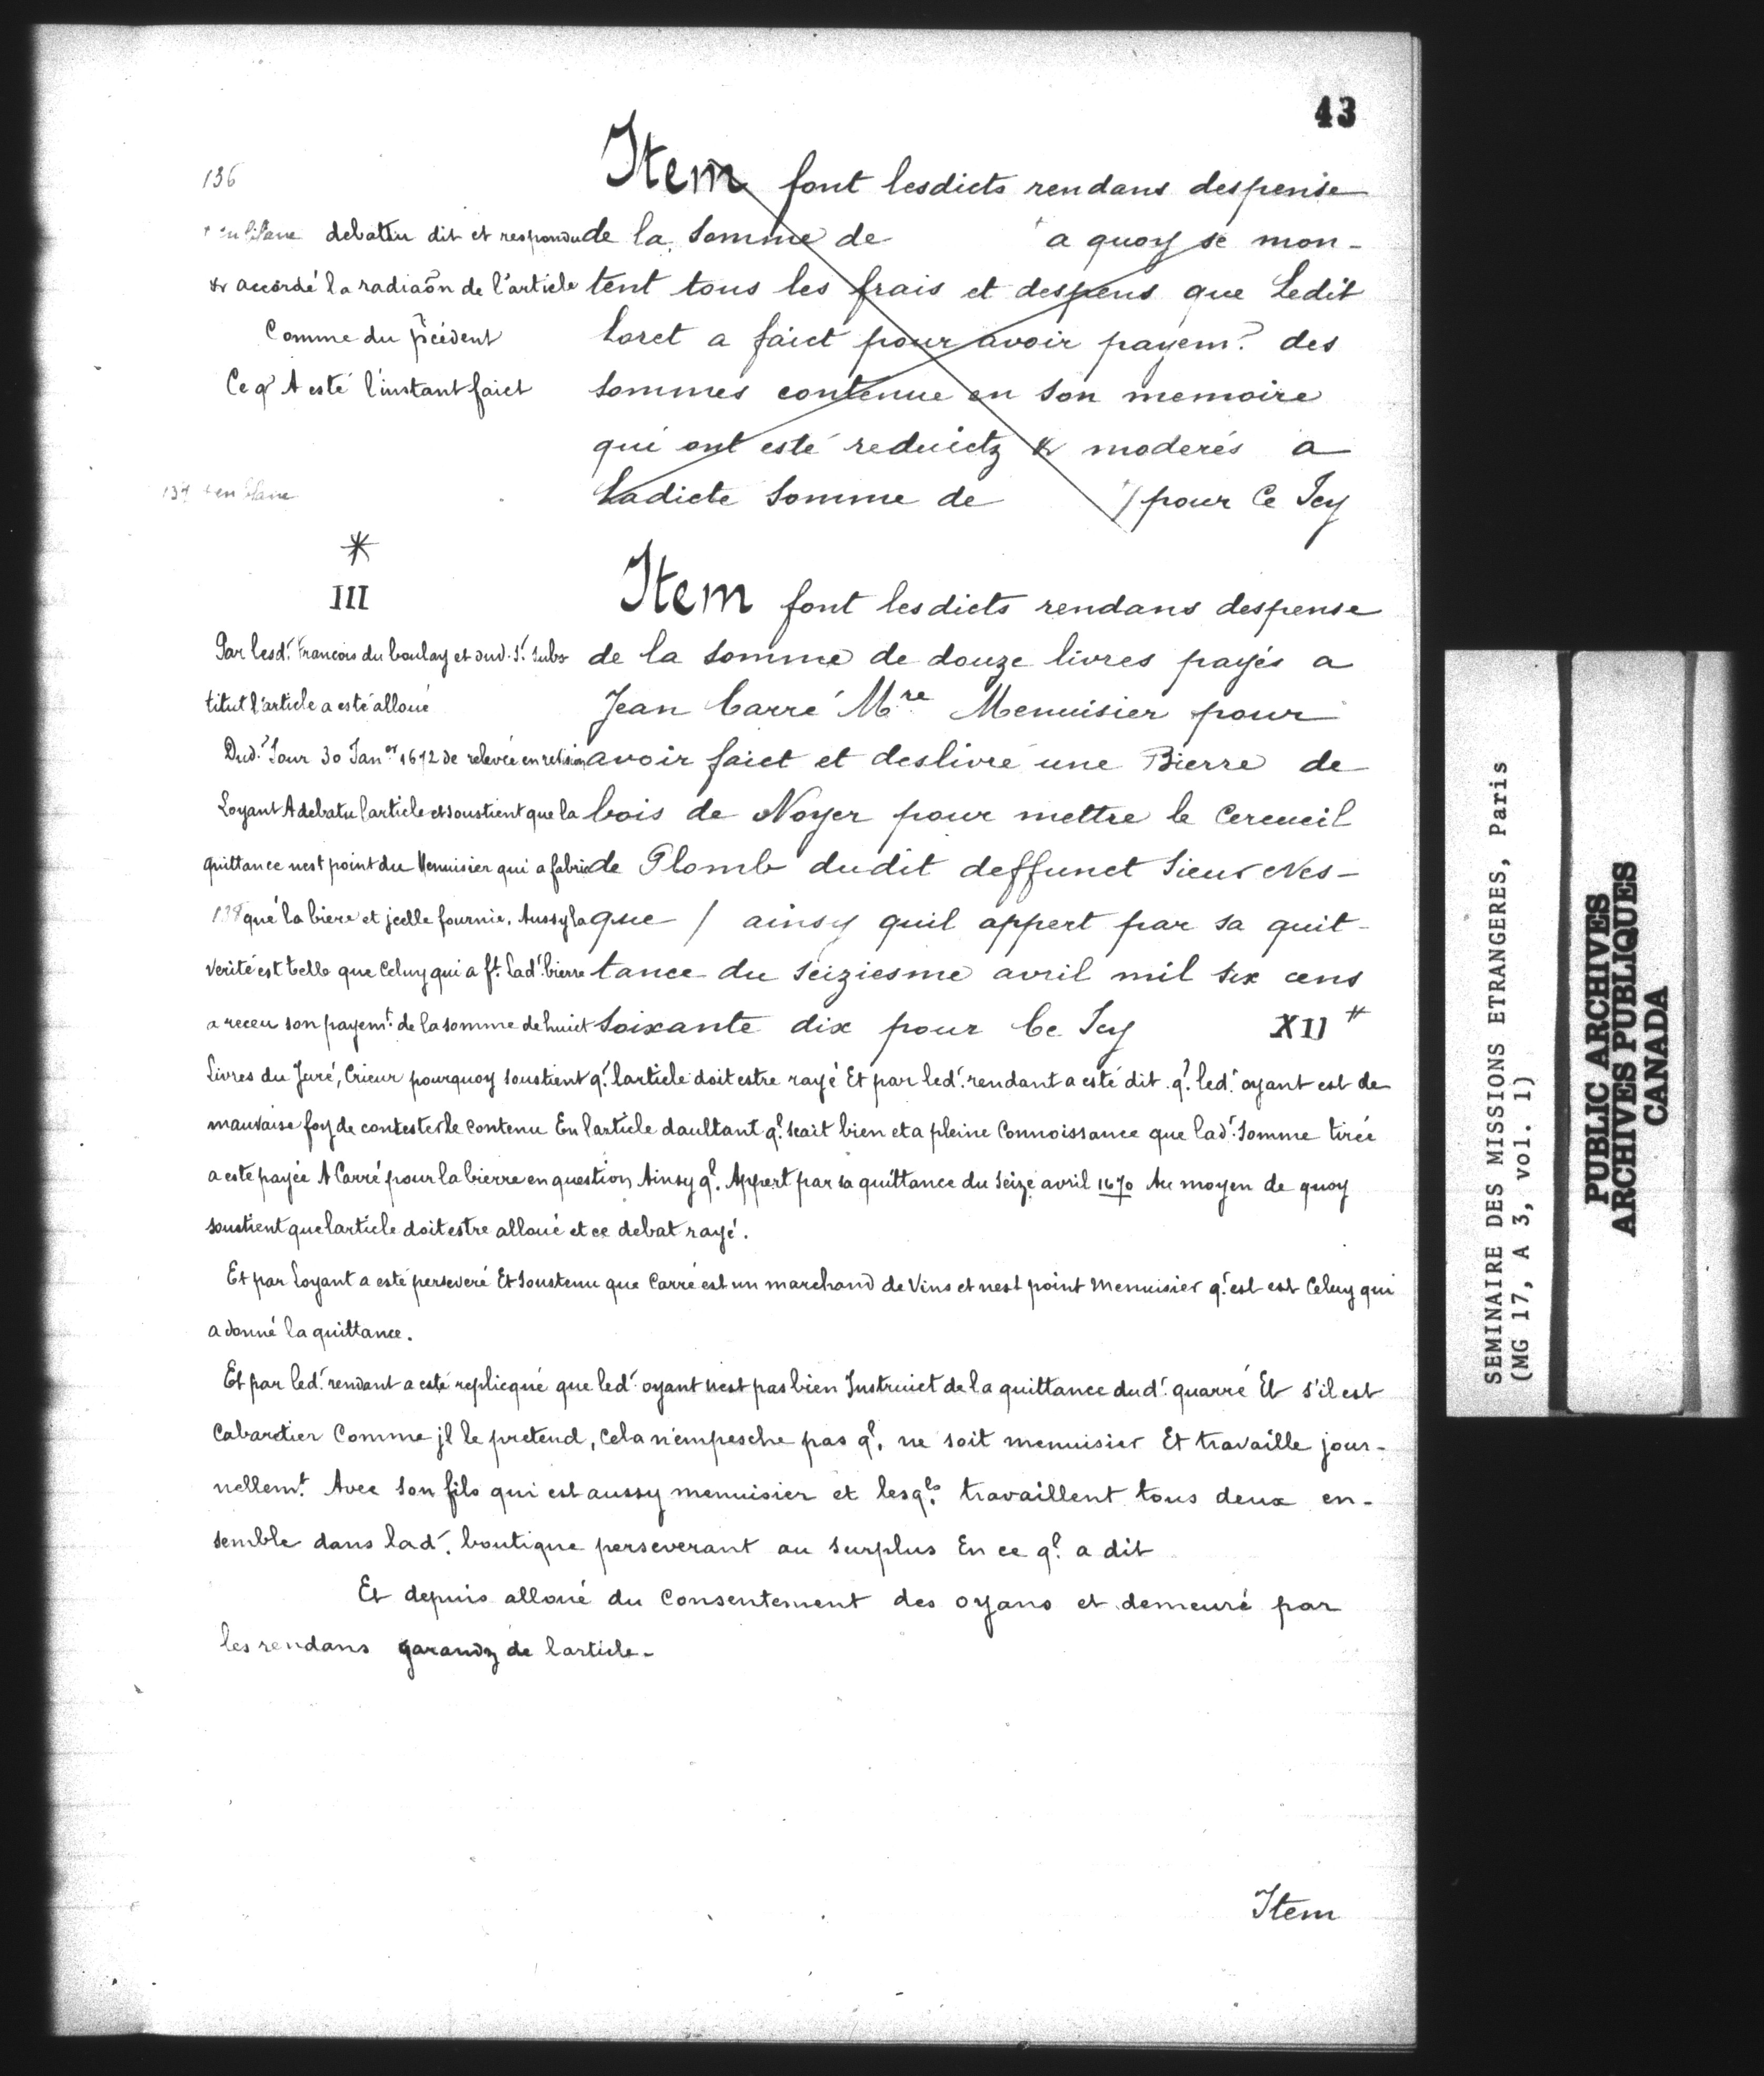 43
136
Item font lesdicts rendans despense
de la somme de a quoy se mon-
tent tous les frais et despens que Ledit
Loret a faict pour avoir payemt. des
sommes contenue en son memoire
qui ont esté reduictz & moderés a
Ladicte somme de / pour Ce Icy
en blanc debattu dit et respondu
& accordé la radiaõn de l'article
Comme du p̃cedent
Ce q' A esté l'instant faict
137 en blanc
*
III
Item font lesdicts rendans despense
de la somme de douze livres payés a
Jean Carré Mre Menuisier pour
avoir faict et deslivré une Bierre de
bois de Noyer pour mettre le Cercueil
de Plomb dudit deffunct Sieur Nes-
que / ainsy quil appert par sa quit-
tance du seiziesme avril mil six cens
soixante dix pour Ce Icy XII ₶
Par lesd. François du boulay et dud. Sr. Subs
titut l'article a esté alloué
Dud. Jour 30 Janer 1672 de relevée en
Loyant A debatu larticle et soustient que la
quittance nest point du Menuisier qui a fabri
138 qué la biere et jcelle fournie, Aussy la
verité est telle que Celuy qui a ft. Lad. bierre
a receu son payemt. de la somme de huict
Livres du Juré, Crieur pourquoy soustient ql. larticle doit estre rayé Et par led. rendant a esté dit ql. led. oyant est de
mauvaise foy de contester le contenu En larticle daultant ql. scait bien et a pleine Connoissance que lad. Somme tirée
a esté payée A Carré pour la bierre en question Ainsy ql. Appert par sa quittance du Seize avril 1670 Au moyen de quoy
soustient que larticle doit estre alloué et ce debat rayé.
Et par Loyant a esté perseveré Et Soustenu que Carré est un marchand de Vins et nest point Menuisier q. est est Celuy qui
a donné la quittance.
Et par led. rendant a esté replicqué que led. oyant nest pas bien Instruict de la quittance dud. quarré Et s'il est
Cabaretier Comme jl le pretend, Cela n'empesche pas ql. ne soit menuisier Et travaille jour-
nellemt. Avec son fils qui est aussy menuisier et lesqls. travaillent tous deux en-
semble dans lad. boutique perseverant au surplus En ce ql. a dit
Et depuis alloué du Consentement des oyans et demeuré par
les rendans garandz de larticle-
Item
SEMINAIRE DES MISSIONS ETRANGERES, Paris
(MG 17, A 3, vol. 1)
PUBLIC ARCHIVES
ARCHIVES PUBLIQUES
CANADA